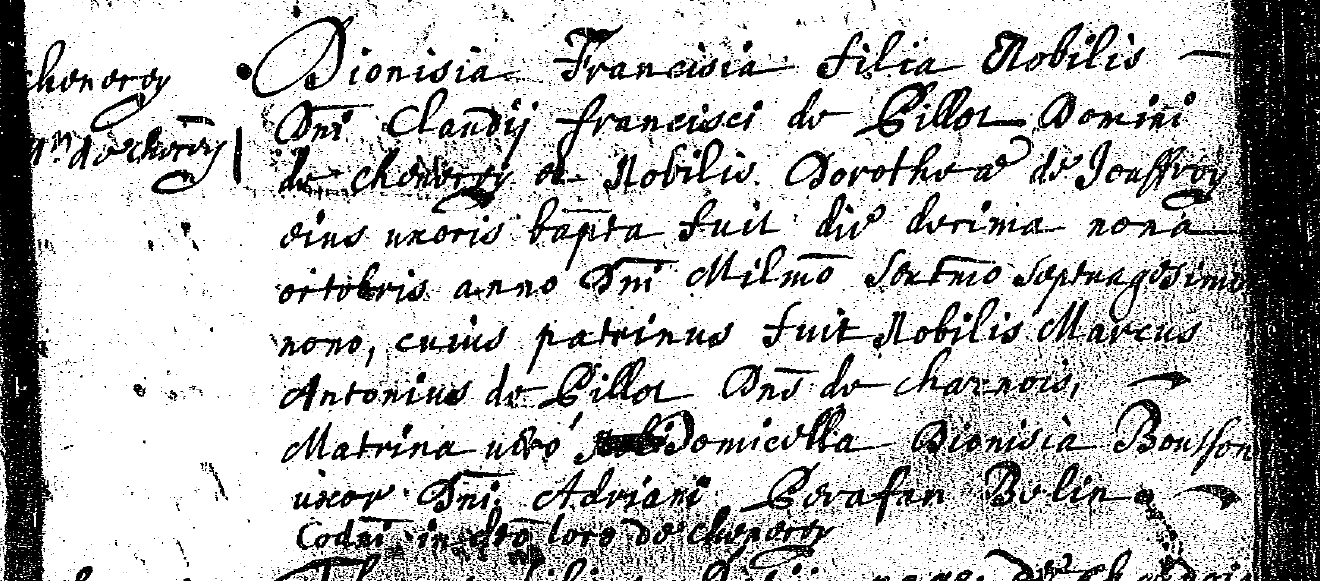 chenecey
de checey
Dionisia Francisia filia Nobilis
Dni Claudij francisci de Pillot Domini
de chenecey et Nobilis Dorotheae de Jouffroy
eius uxoris bapta fuit die decima nona
octobris anno Dni Milmo Sextmo septuagesimo
nono, cuius patrinus fuit Nobilis Marcus
Antonius de Pillot Dns de charnois,
Matrina vero Domicella Dionisia
uxor Dni Adriani Belin
Codni in dto loco de chenecey